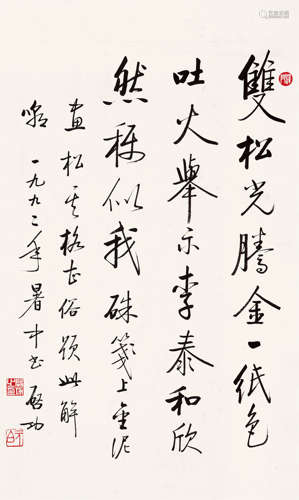 雙松光騰金一紙色
吐火舉示李泰和欣
然稱似我硃箋上金泥
畫松其格古俗頌此解
嘲 一九九二年暑中書 啟功